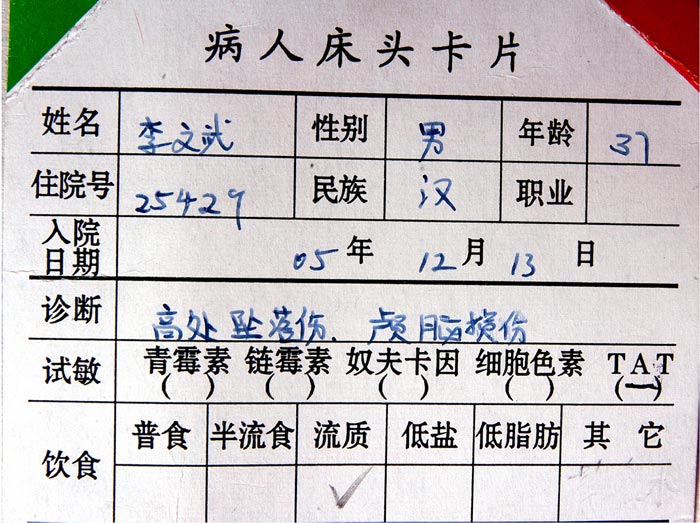 病人床头卡片
姓名 李文武 性别 男 年龄 37
住院号 25429 民族 汉 职业
入院日期 05年 12月 13日
诊断 高处坠落伤、颅脑损伤
试敏 青霉素( ) 链霉素( ) 奴夫卡因( ) 细胞色素( ) TAT(—)
饮食 普食 半流食 流质 低盐 低脂肪 其它
✓